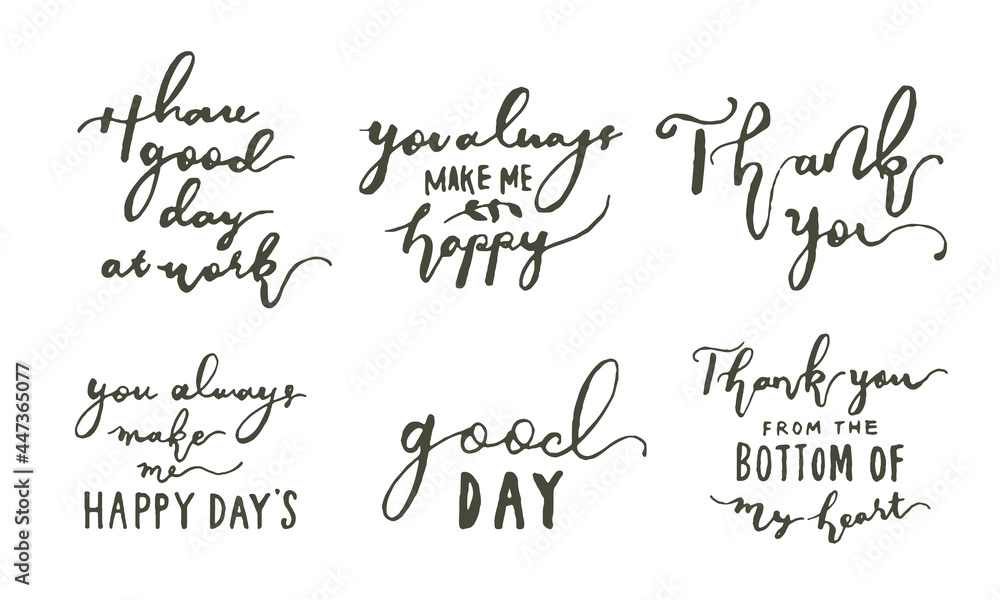 #have
good
day
at work
you always
MAKE ME
happy
Thank
you
you always
make
me
HAPPY DAY'S
good
DAY
Thank you
FROM THE
BOTTOM OF
my heart
Adobe Stock | #447365077